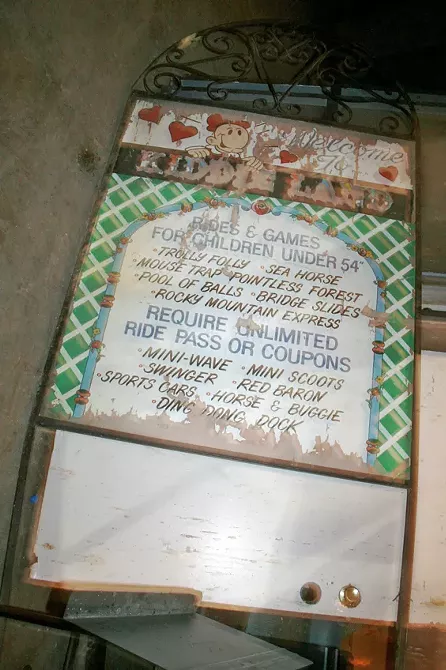 Welcome
To
KIDDIE LAND
RIDES & GAMES
FOR CHILDREN UNDER 54"
•TROLLY FOLLY •SEA HORSE
•MOUSE TRAP •POINTLESS FOREST
•POOL OF BALLS •BRIDGE SLIDES
•ROCKY MOUNTAIN EXPRESS
REQUIRE UNLIMITED
RIDE PASS OR COUPONS
•MINI-WAVE •MINI SCOOTS
•SWINGER •RED BARON
•SPORTS CARS •HORSE & BUGGIE
•DING DONG DOCK